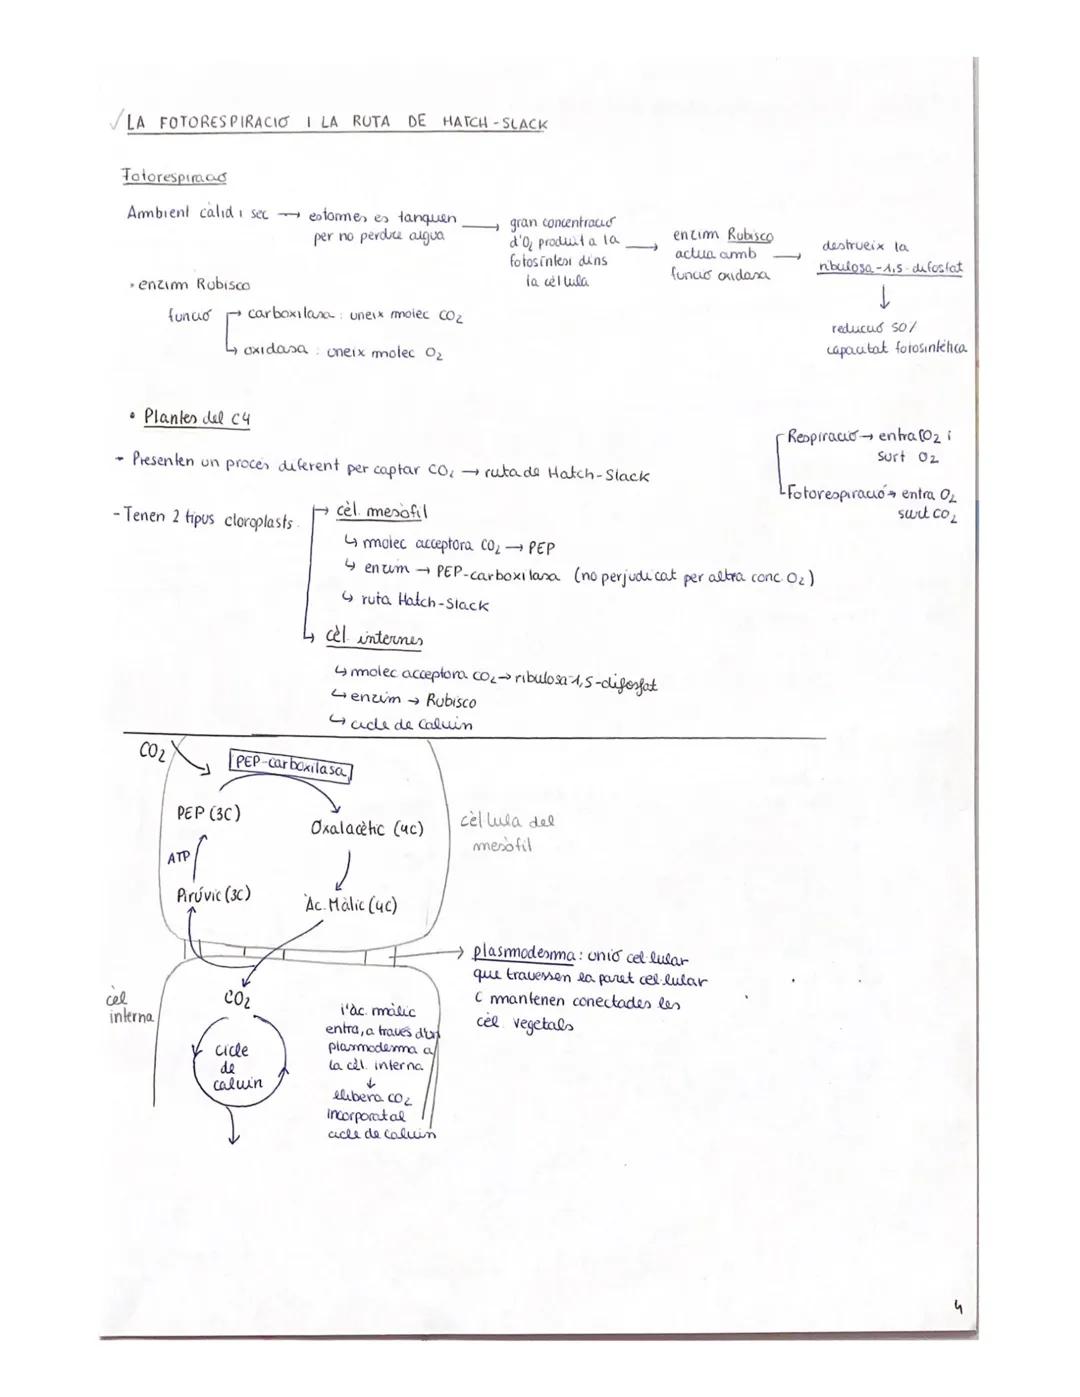 LA FOTORESPIRACIÓ I LA RUTA DE HATCH-SLACK
Fotorespiració
Ambient càlid i sec → estomes es tanquen
per no perdre aigua
→ gran concentració
d'O₂ produit a la
fotosíntesi dins
la cèl·lula
→ enzim Rubisco
actua amb
funció oxidasa
→ destrueix la
ribulosa-1,5-difosfat
↓
reducció 50%
capacitat fotosintètica
• enzim Rubisco
funció → carboxilasa: uneix molec CO₂
↳ oxidasa: uneix molec O₂
• Plantes del C4
- Presenten un procés diferent per captar CO₂ → ruta de Hatch-Slack
Respiració → entra CO₂ i
surt O₂
Fotorespiració → entra O₂
surt CO₂
- Tenen 2 tipus cloroplasts
→ cèl. mesòfil
↳ molec acceptora CO₂ → PEP
↳ enzim → PEP-carboxilasa (no perjudicat per altra conc. O₂)
↳ ruta Hatch-Slack
↳ cèl. internes
↳ molec acceptora CO₂ → ribulosa-1,5-difosfat
↳ enzim → Rubisco
↳ cicle de Calvin
CO₂
PEP-carboxilasa
PEP (3C)
Oxalacètic (4C)
cèl·lula del
mesòfil
ATP
Pirúvic (3C)
Àc. Màlic (4C)
→ plasmodesma: unió cel·lular
que travessen la paret cel·lular
i mantenen conectades les
cèl. vegetals
cèl
interna
CO₂
cicle
de
calvin
l'àc. màlic
entra, a través d'un
plasmodesma a
la cèl. interna
↓
allibera CO₂
incorporat al
cicle de Calvin
4